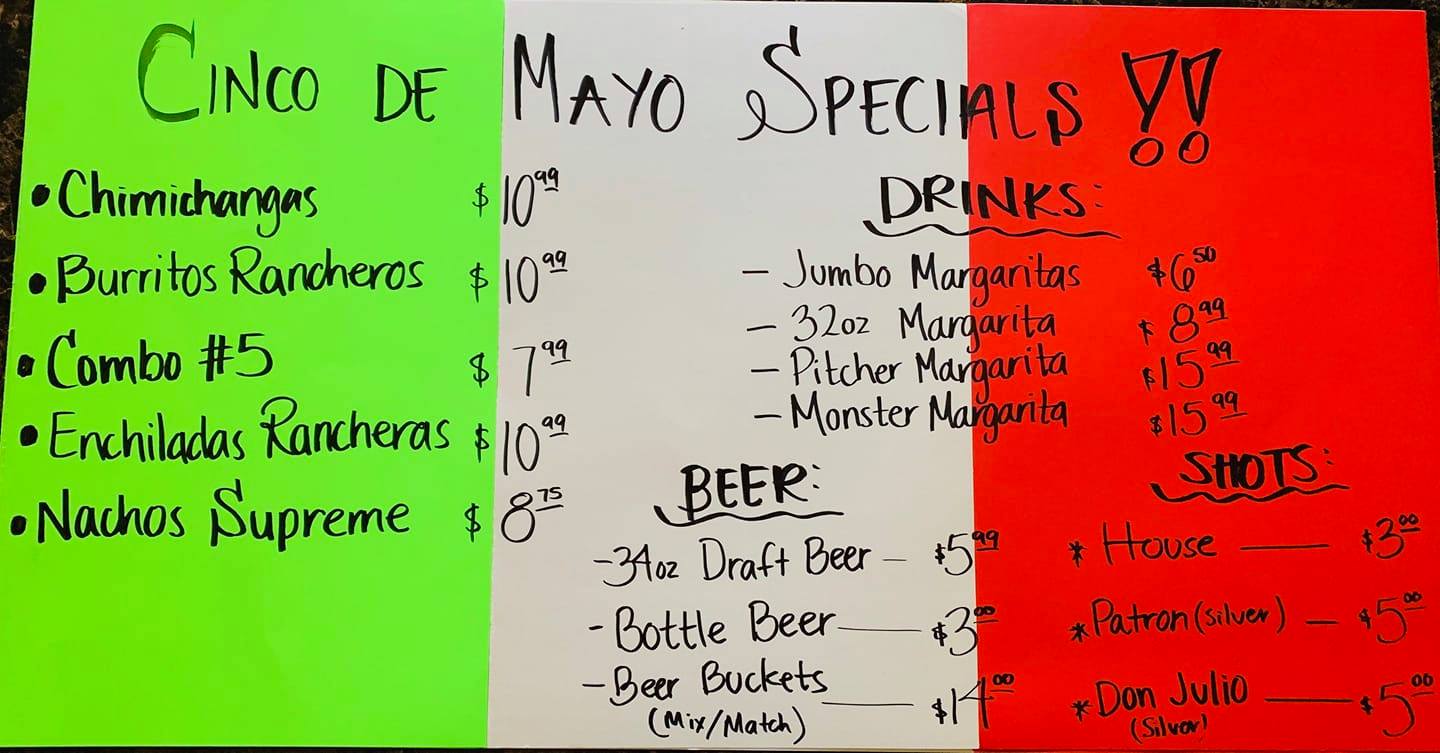 CINCO DE MAYO SPECIALS !!
• Chimichangas $10.99
• Burritos Rancheros $10.99
• Combo #5 $7.99
• Enchiladas Rancheras $10.99
• Nachos Supreme $8.75
DRINKS:
- Jumbo Margaritas $6.50
- 32oz Margarita $8.99
- Pitcher Margarita $15.99
- Monster Margarita $15.99
BEER:
- 34oz Draft Beer - $5.99
- Bottle Beer — $3.00
- Beer Buckets — $14.00
(Mix/Match)
SHOTS:
* House — $3.00
* Patron (silver) — $5.00
* Don Julio — $5.00
(Silver)